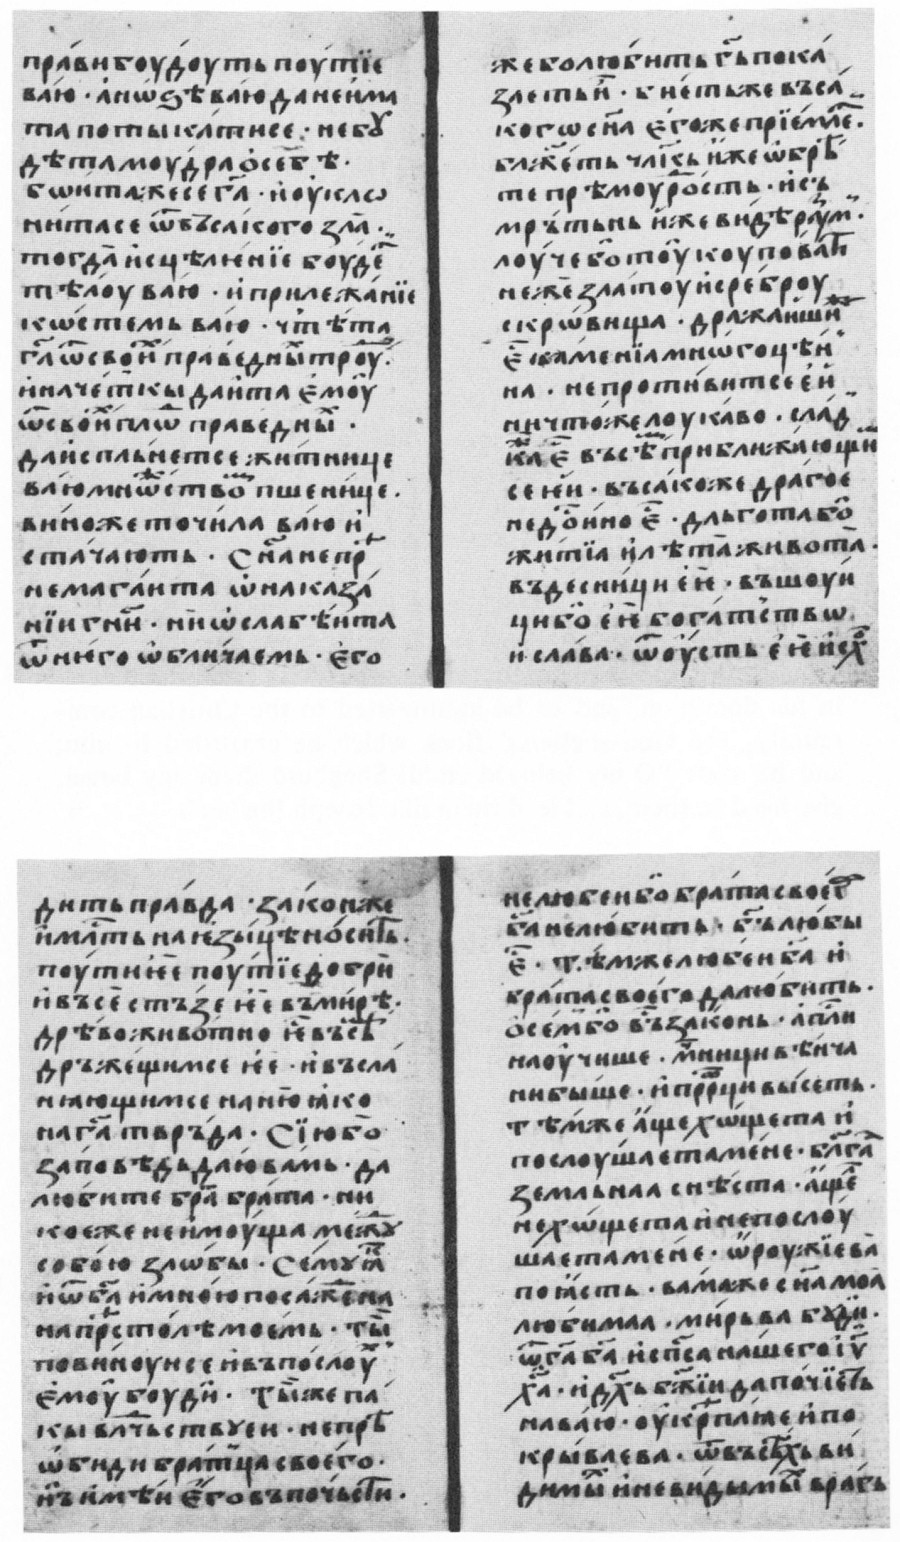 пра́ви боу́доуть поу́тїе
ва́ю · а҆ нѡѕѣ ва́ю да не и҆ма
та потыка́тисе · не бꙋ́
дѣта моу́дра ѡ҆ себѣ ·
бѡи́та же се га҃ · и҆ оу҆кло
ни́тасе ѿ въса́кого зла̀ ·
тогда̀ и҆сцѣле́нїе боуде
тѣ́лоу ва́ю · и҆ прилежа́нїе
кѡ́стемь ва́ю · чтѣ́та
га҃ ѿ свои́х пра́ведных троу́д
и҆ наче́тки да́ита е҆моу̀
ѿ свои́х плѡд пра́ведных ·
да и҆спль́нетсе жи́тнице
ва́ю мнѡ́жество пшени́це ·
вино же точи́ла ва́ю и҆
ста́чають · Сн҃а не прѣ
немага́ита ѡ҆ наказа́
нїи гн҃и · ни ѡ҆слабѣ́ита
ѿ него̀ ѡ҆блича́емь · е҆го
же бо лю́бить гь҃ пока́
заеть и · бїе́ть же въса́
кого сн҃а е҆го́же прїе́мле ·
блаже́нь чл҃кь и҆́же ѡ҆брѣ́
те прѣмоу́дрость · и҆ съ
мрътьнь и҆́же ви́дѣ ра́зум ·
лоу́че бо тоу̀ коупова́ти
неже зла́тоу и҆ сре́броу
скрѡ́вища · дража́иши
е҆ ка́менїа мнѡгоцѣ́н
на · не проти́витсе е҆и́
ничто́же лоука́во · сла́д
ка е҆ въсѣ́м приближа́ющи
се е҆и́ · въса́ко же драго́е
недосто́ино е҆ · дльгота́ бо
житїа̀ и҆ лѣ́та живота̀ ·
въ десни́ци е҆е · въ шоуи́
ци бо е҆е бога́тство
и҆ сла́ва · ѿ оу҆́сть е҆е и҆схо
дить пра́вда · зако́н же
и҆ ми́лость на е҆зы́цѣ но́сить ·
поутїе е҆е поутїе до́бри
и҆ въсе стьзе е҆е въ ми́рѣ ·
дрѣ́во живо́тно е҆ въсѣ́м
дрьже́щимсе е҆е · и҆ въсла
нꙗ́ющимсе на ню ꙗ҆́ко
на га҃ тврьда · Сїю бо
за́повѣдь даю̀ ва́мь · да
лю́бите бра бра́та · ни
кое́же не и҆моу́ща ме́ждꙋ
собо́ю зло́бы · Семꙋ̀
и҆ ѿ ба҃ и҆ мно́ю посаже́на
на прѣстолѣ мое́мь · ты
повиноу́исе и҆ въ послоу́х
е҆моу̀ боу́ди · Ты́ же па́
кы вла́чьствꙋеи · не прѣ
ѡ҆би́ди бра́тца своего̀ ·
нь и҆мѣ́и е҆го въ почь́сти ·
не любе́и бо бра́та своего
ба҃ не лю́бить · бь҃ любы̀
е҆ · тѣ́мже любе́и ба҃ и҆
бра́та своего̀ да лю́бить ·
ѡ҆ семь бо въ зако́нь · а҆пⷭ҇ли
наоу҆чише · мⷱ҇ници вѣнча
ни бы́ше · и҆ прⷪ҇рци ви́сеть ·
тѣ́мже а҆́ще хѡ́щета и҆
послоу́шаета мене · бл҃га́а
земльна́а снѣ́ста · а҆́ще
не хѡ́щета и҆ не послоу́
шаета мене · ѡ҆роужїе ва
поꙗ҆сть · ва́ма же сн҃а моа̀
люби́маа · мирь ва бꙋ́ди ·
ѿ га҃ ба҃ и҆ сп҃са на́шего і҆ꙋ҃
ха҃ · и҆ дх҃ь бж҃їи да почїеть
на ва́ю · оу҆крѣплꙗ́е и҆ по
крыва́е ва · ѿ въсѣ́хь ви́
димых и҆ неви́димых врагь